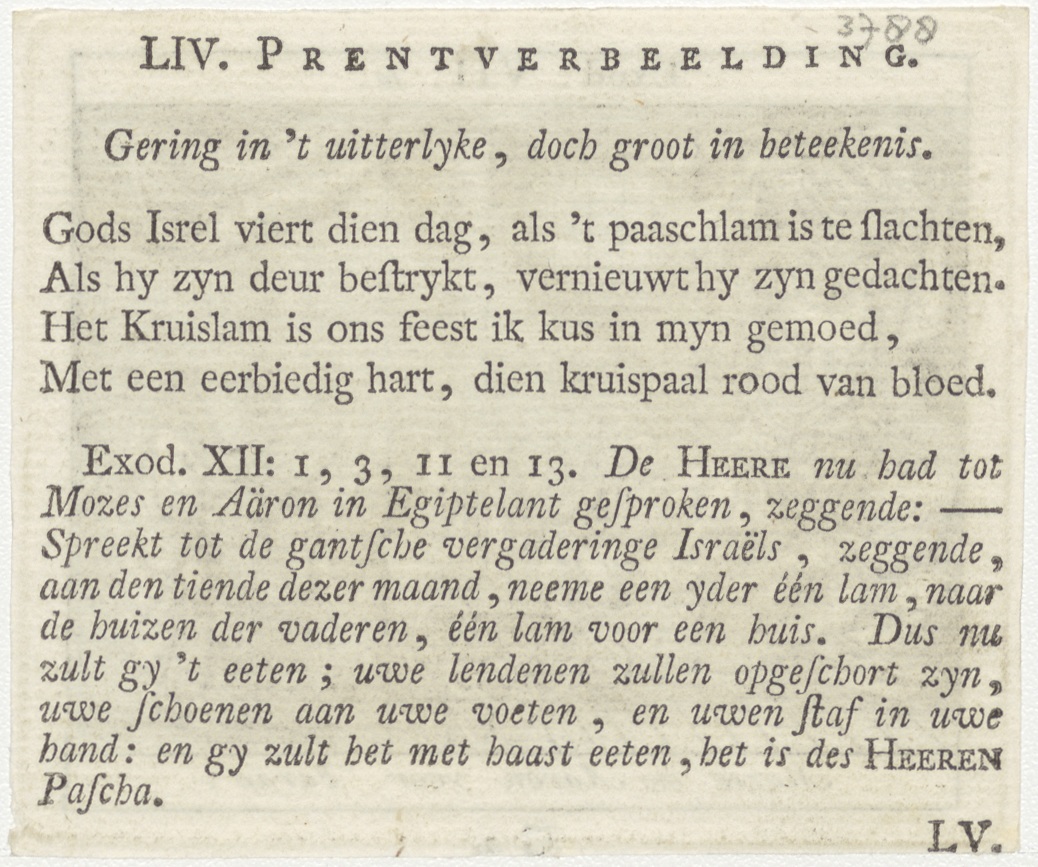 3788
LIV. PRENTVERBEELDING.
Gering in 't uitterlyke, doch groot in beteekenis.
Gods Isrel viert dien dag, als 't paaschlam is te ſlachten,
Als hy zyn deur beſtrykt, vernieuwt hy zyn gedachten.
Het Kruislam is ons feest ik kus in myn gemoed,
Met een eerbiedig hart, dien kruispaal rood van bloed.
Exod. XII: 1, 3, 11 en 13. De HEERE nu had tot
Mozes en Aäron in Egiptelant geſproken, zeggende: —
Spreekt tot de gantſche vergaderinge Israëls, zeggende,
aan den tiende dezer maand, neeme een yder één lam, naar
de huizen der vaderen, één lam voor een huis. Dus nu
zult gy 't eeten; uwe lendenen zullen opgeſchort zyn,
uwe ſchoenen aan uwe voeten, en uwen ſtaf in uwe
hand: en gy zult het met haast eeten, het is des HEEREN
Paſcha.
LV.